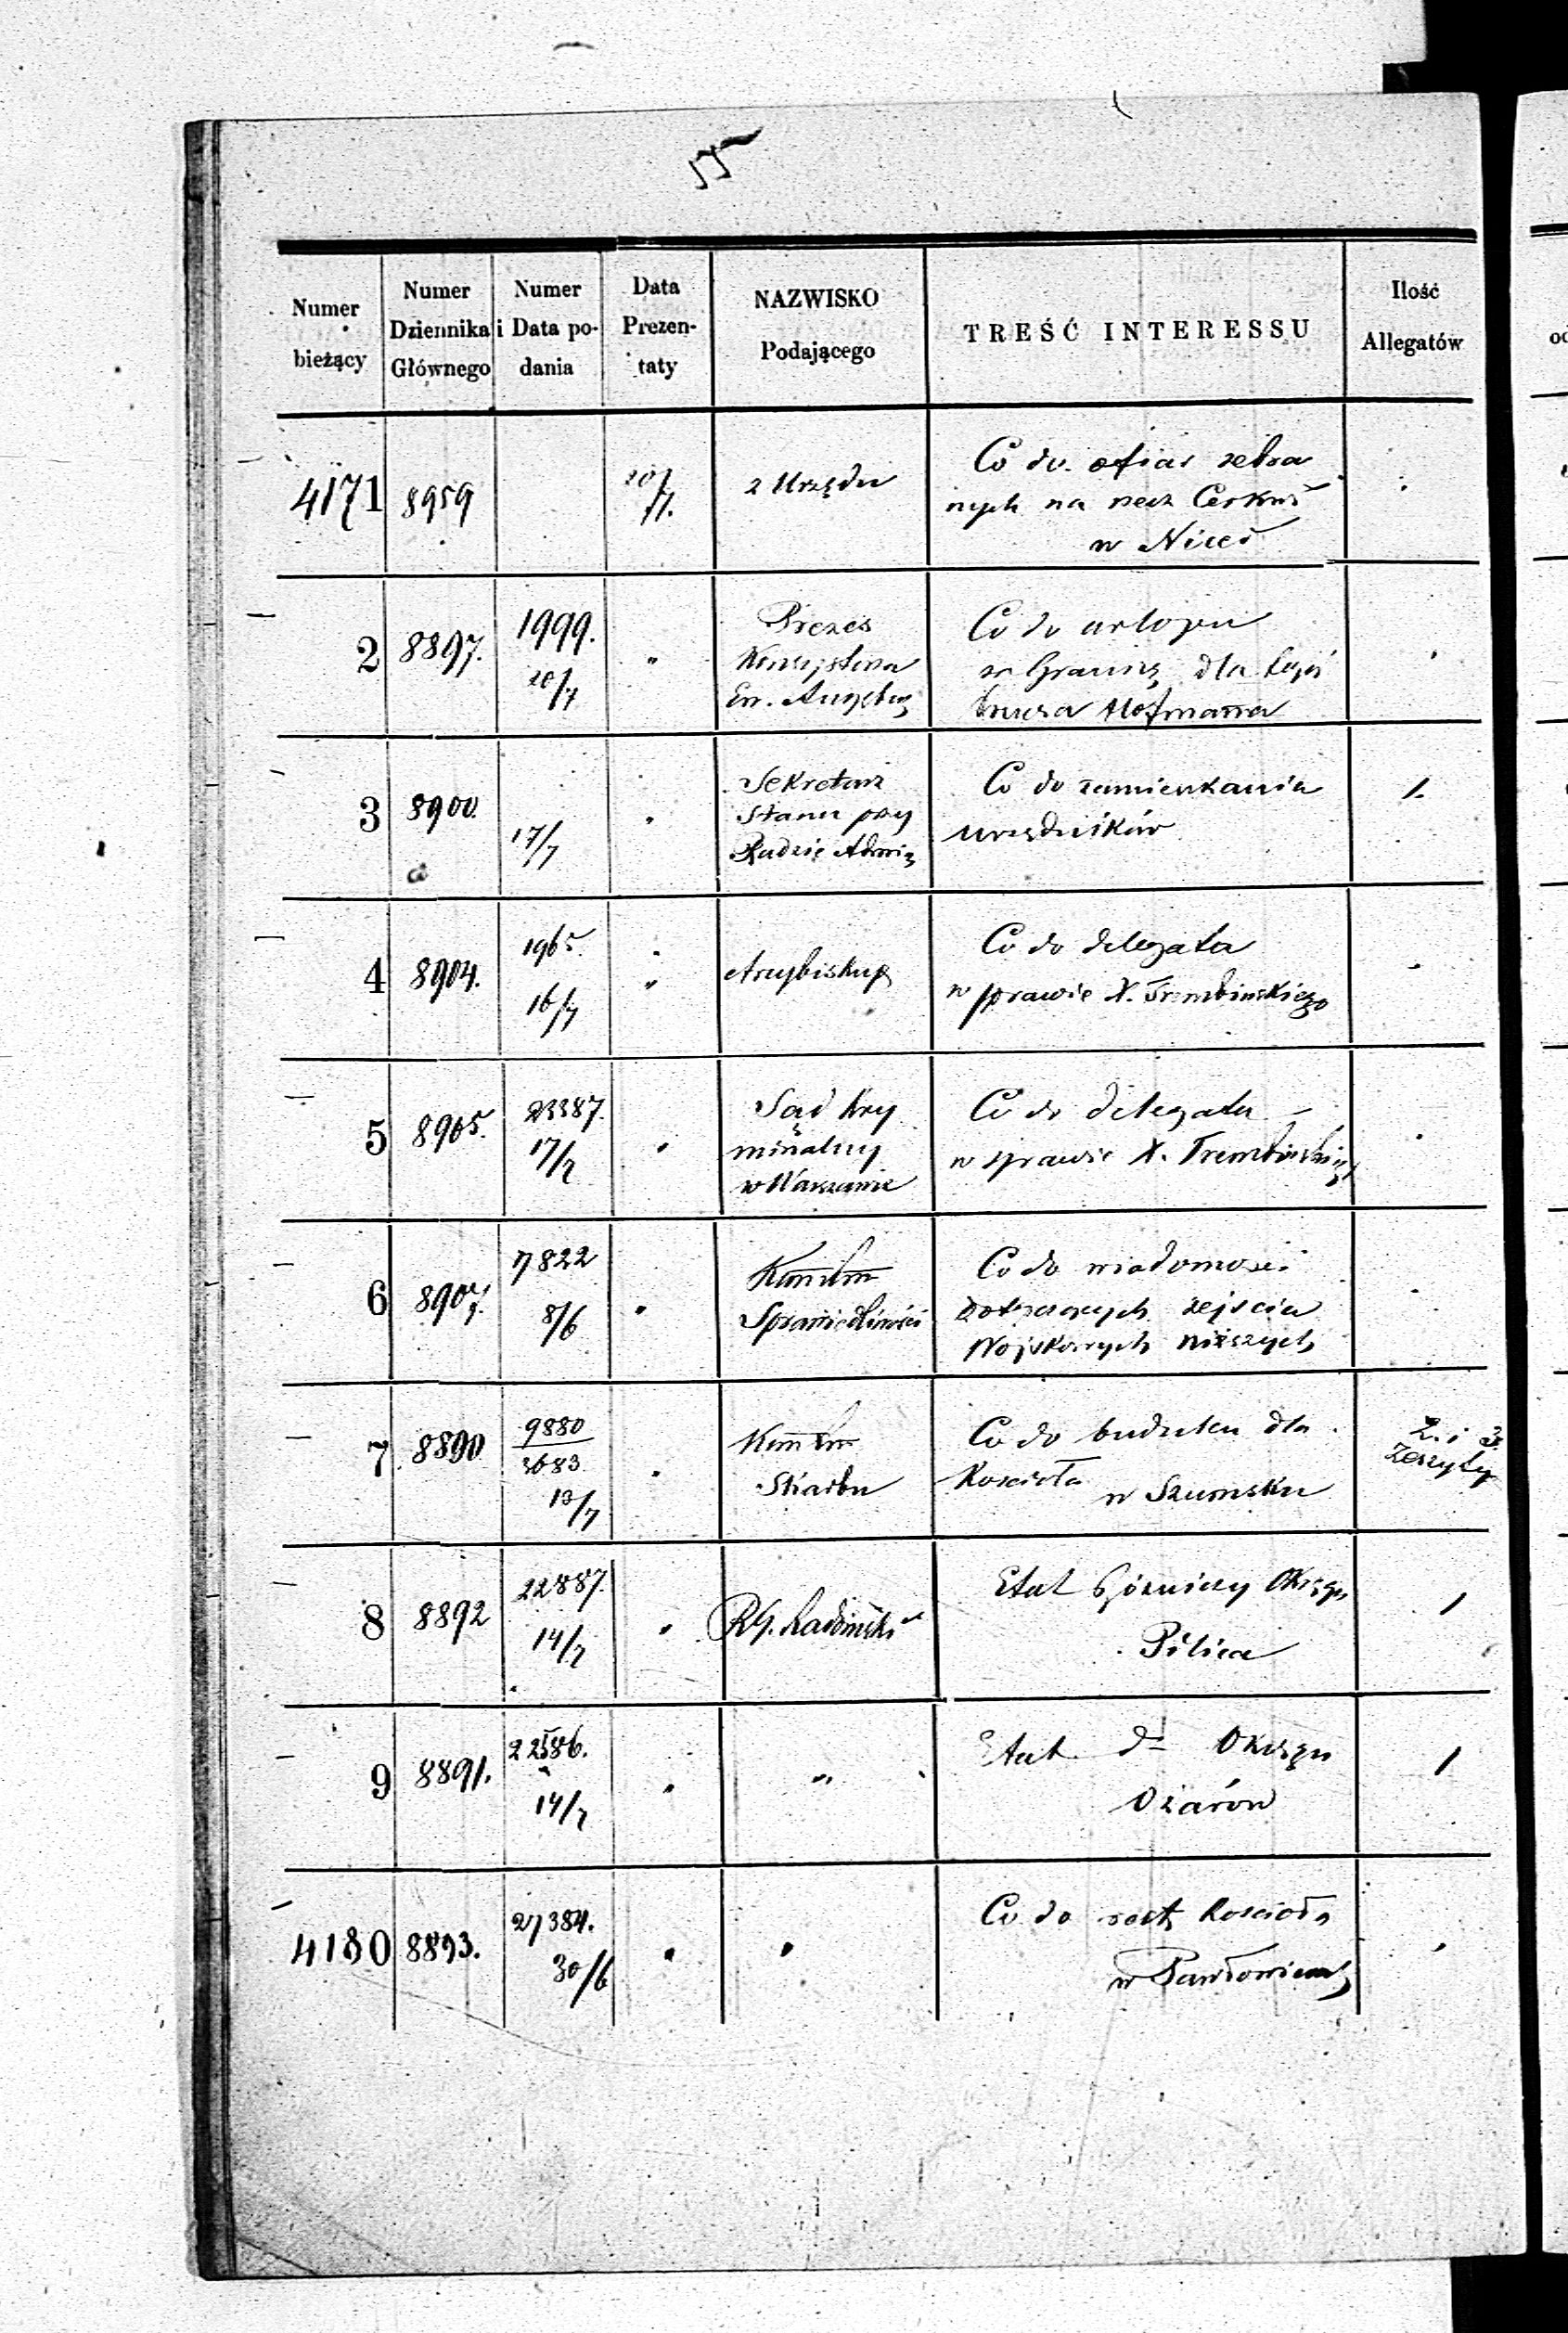 Numer bieżący
Numer Dziennika Głównego
Numer i Data podania
Data Prezentaty
NAZWISKO Podającego
TREŚĆ INTERESSU
Ilość Allegatów
4171 8959 20/7. z Urzędu
Co do ofiar zebra
nych na rzecz Cerkwi
w Nicei
2 8897. 1999. 20/7 "
Prezes
Konsystorza
Ew. Augsburg
Co do urlopu
za Granicę dla
Hofmanna
3 8900. 17/7
Sekretarz
Stanu przy
Radzie Admin
Co do zamieszkania
urzędników
1.
4 8904. 1965. 16/7 "
Arcybiskup
Co do delegata
w sprawie X. Trembinskiego
5 8905. 23387. 17/7 "
Sąd Kry
minalny
w Warszawie
Co do delegata
w sprawie X. Trembinskiego
6 8907. 7822 8/6 "
Sprawiedliwości
Co do wiadomości
dotyczących zejścia
Wojskowych niższych
7 8890 9880
3683
13/7
Skarbu
Co do budulcu dla
Kościoła w Szumsku
2. i 3.
Zeszyty
8 8892 22887. 14/7 "
RG. Radomski
Etat Bóżnicy Okręgu
Pilica
1
9 8891. 22586. 14/7 " "
Etat do Okręgu
Ożarów
1
4180 8893. 27384. 30/6 " "
Co do Kościoła
w